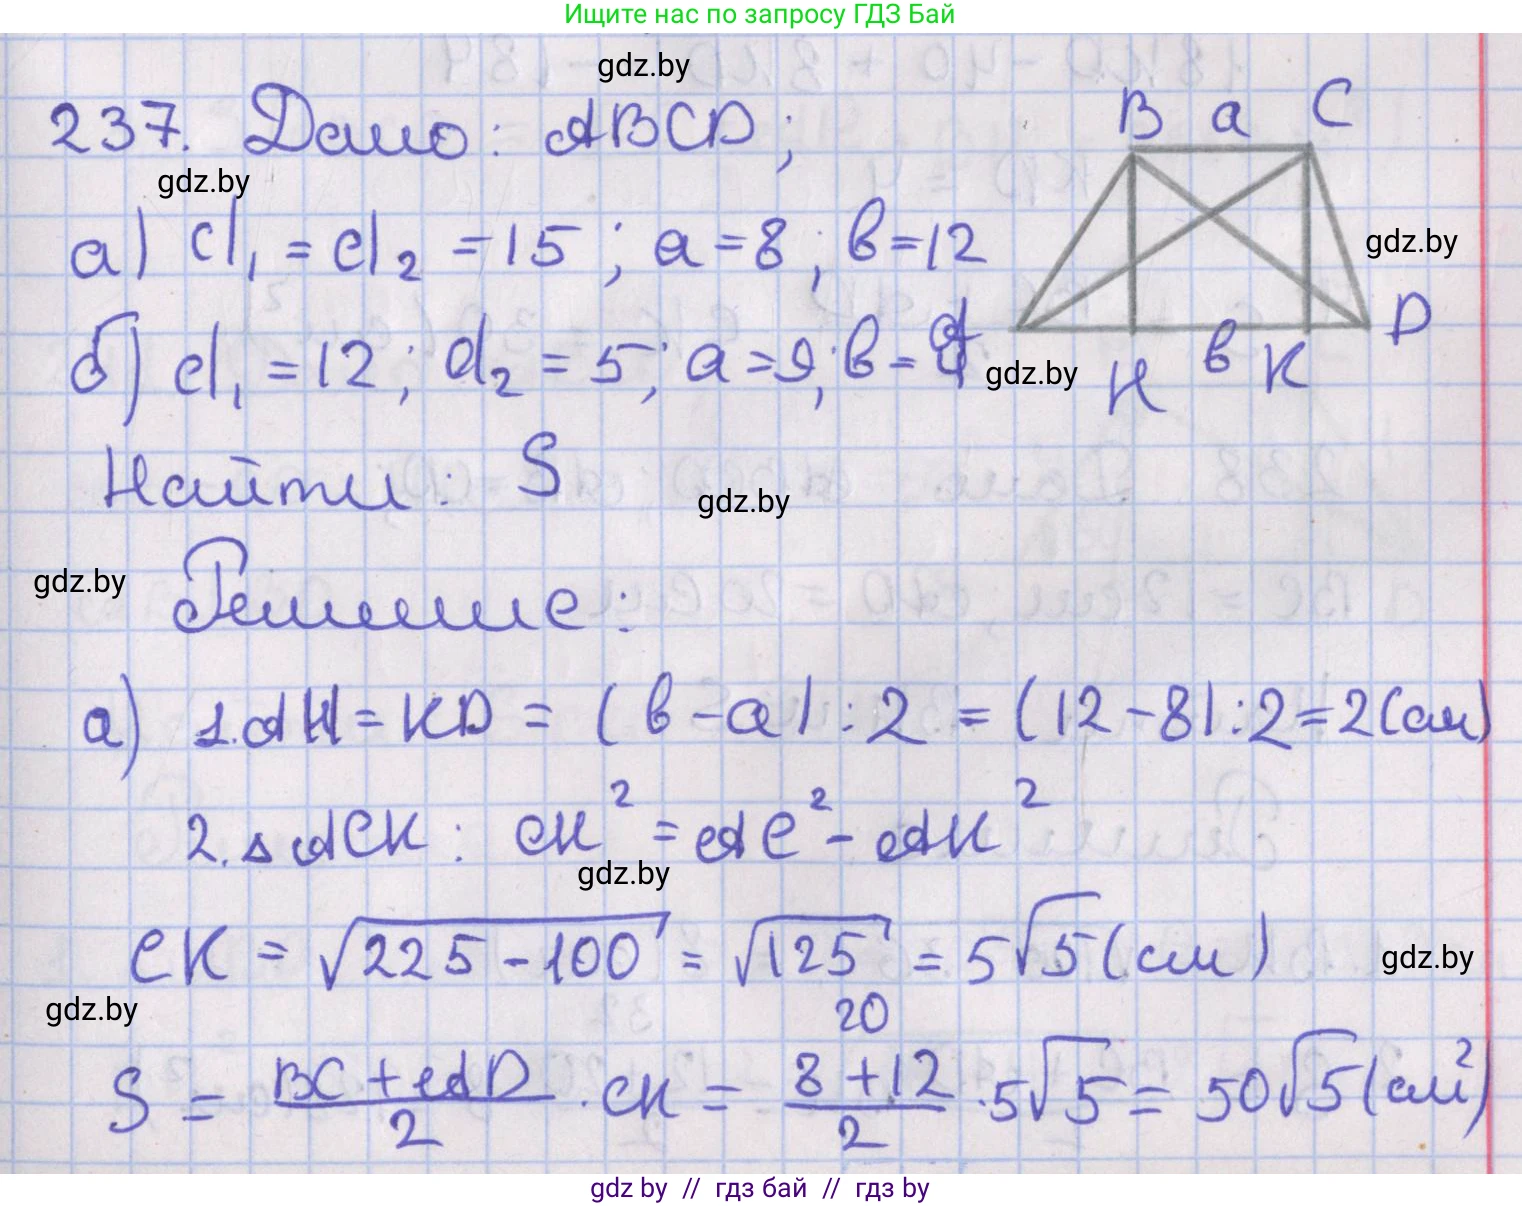 Ищите нас по запросу ГДЗ Бай
gdz.by
237. Дано: ABCD;
B a C
gdz.by
а) d₁ = d₂ = 15; a = 8; в = 12
gdz.by
б) d₁ = 12; d₂ = 5; a = 9; в =
D
gdz.by
H в K
Найти: S
gdz.by
gdz.by
Решение:
а) 1. AH = KD = (в - a) : 2 = (12 - 8) : 2 = 2 (см)
2. △ ACK: CK² = AC² - AK²
gdz.by
CK = √225 - 100 = √125 = 5√5 (см)
gdz.by
gdz.by
20
S = BC + AD / 2 · CK = 8 + 12 / 2 · 5√5 = 50√5 (см²)
gdz by // гдз бай // гдз by